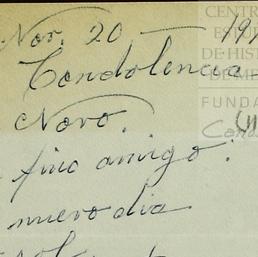 Nov. 20 - 19
Condolencia
Novo.
fino amigo:
nuevo dia
CENTR
E
DE HIST
DE ME
FUNDA